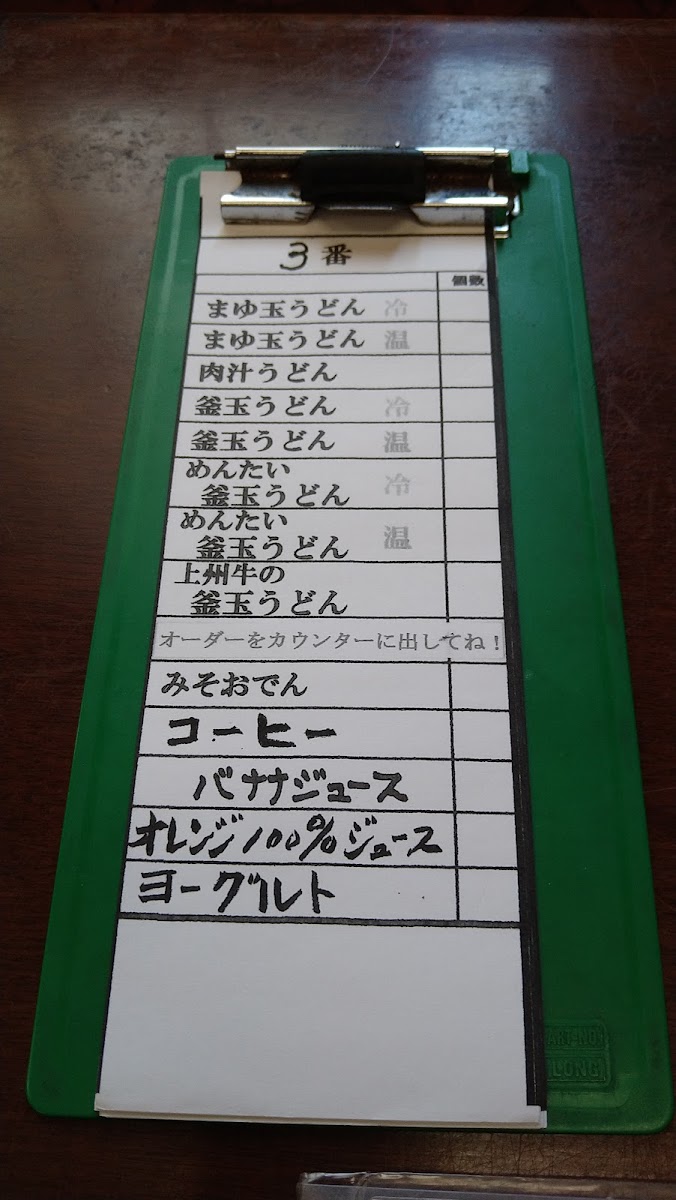 3番
個数
まゆ玉うどん 冷
まゆ玉うどん 温
肉汁うどん
釜玉うどん 冷
釜玉うどん 温
めんたい
釜玉うどん 冷
めんたい
釜玉うどん 温
上州牛の
釜玉うどん
オーダーをカウンターに出してね！
みそおでん
コーヒー
バナナジュース
オレンジ100%ジュース
ヨーグルト
LONG